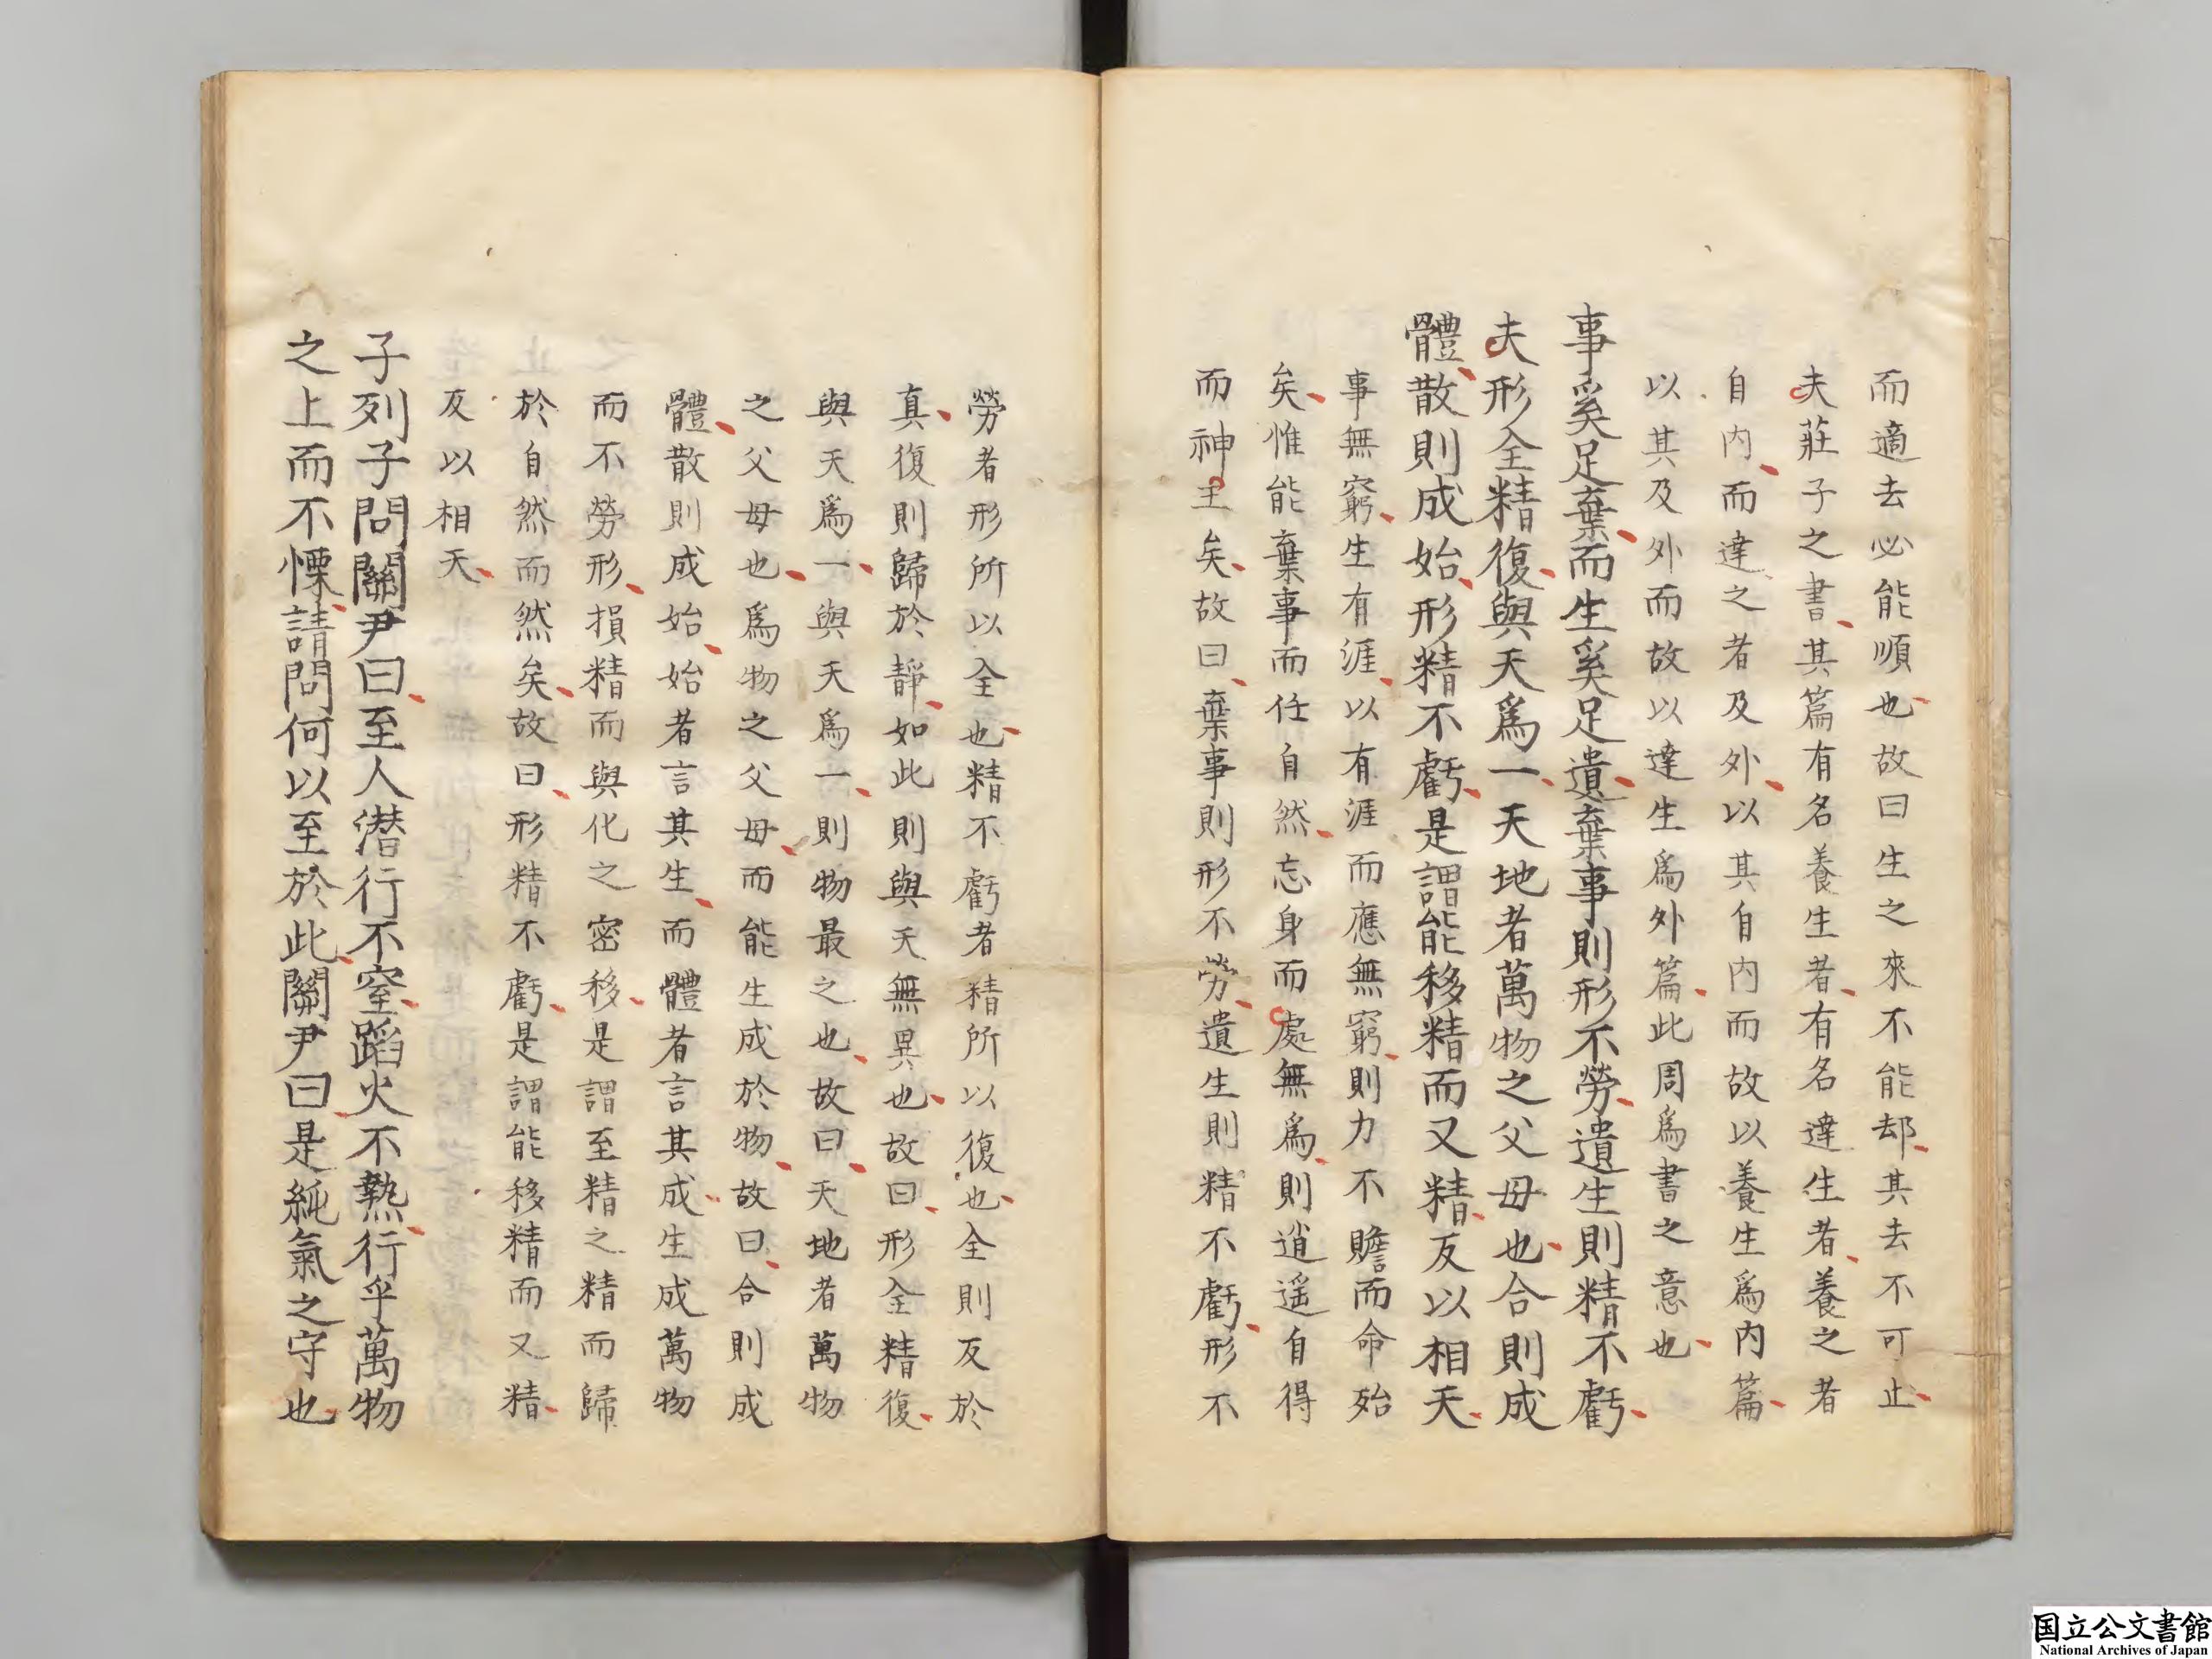 而適去必能順也故曰生之來不能却其去不可止
夫莊子之書其篇有名養生者有名達生者養之者
自内而達之者及外以其自内而故以養生爲内篇
以其及外而故以達生爲外篇此周爲書之意也
事奚足棄而生奚足遺棄事則形不勞遺生則精不虧
夫形全精復與天爲一天地者萬物之父母也合則成
體散則成始形精不虧是謂能移精而又精反以相天
事無窮生有涯以有涯而應無窮則力不贍而命殆
矣惟能棄事而任自然忘身而處無爲則逍遥自得
而神王矣故曰棄事則形不勞遺生則精不虧形不
勞者形所以全也精不虧者精所以復也全則反於
真復則歸於静如此則與天無異也故曰形全精復
與天爲一與天爲一則物最之也故曰天地者萬物
之父母也爲物之父母而能生成於物故曰合則成
體散則成始始者言其生而體者言其成生成萬物
而不勞形損精而與化之密移是謂至精之精而歸
於自然而然矣故曰形精不虧是謂能移精而又精
反以相天
子列子問關尹曰至人潜行不窒蹈火不熱行乎萬物
之上而不慄請問何以至於此關尹曰是純氣之守也
国立公文書館
National Archives of Japan